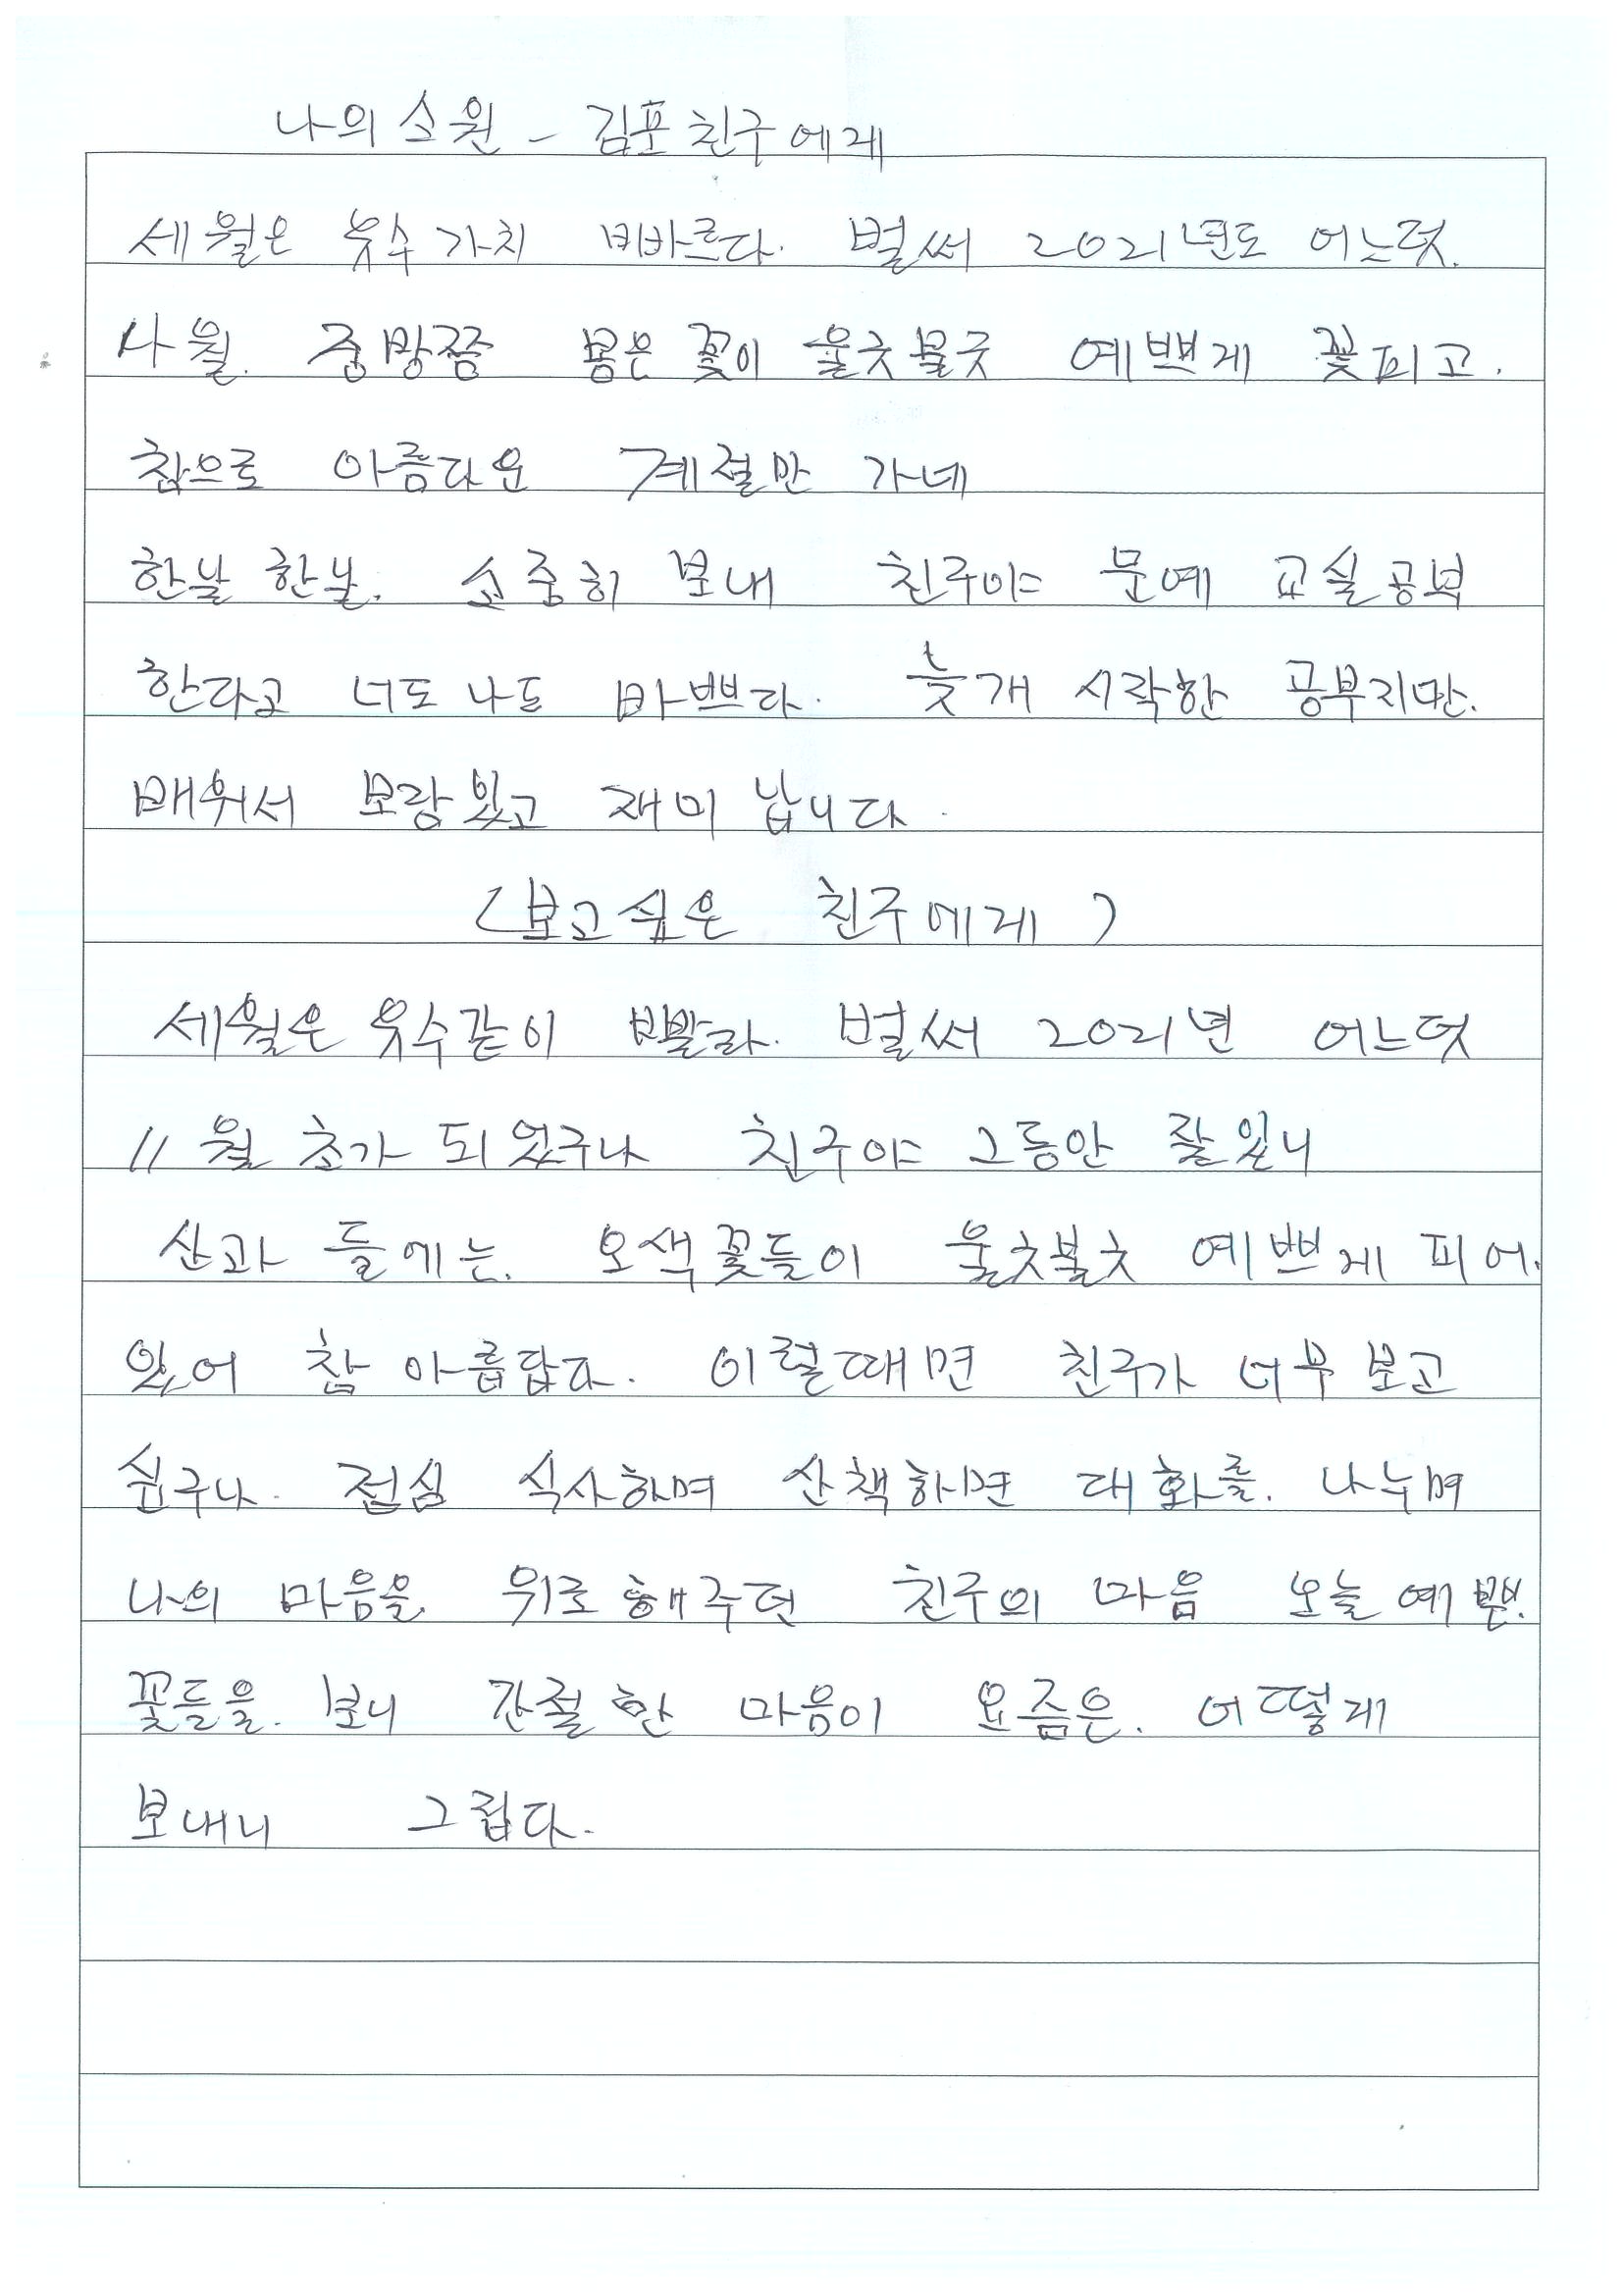 나의 소원 - 김포 친구에게
세월은 유수 가치 빠르다. 벌써 2021년도 어느덧.
사월. 중방쯤 봄은 꽃이 울긋불긋 예쁘게 꽃피고.
참으로 아름다운 계절만 가네
한날 한날. 소중히 보내 친구야 문예 교실공부
한다고 너도 나도 바쁘다. 늦개 시작한 공부지만.
배워서 보람있고 재미 납니다.
(보고싶은 친구에게)
세월은 유수같이 빨라. 벌써 2021년 어느덧
11월 초가 되었구나 친구야 그동안 잘있니
산과 들에는. 오색꽃들이 울긋불긋 예쁘게 피어.
있어 참 아름답다. 이럴때면 친구가 너무 보고
싶구나. 점심 식사하며 산책하면 대화를. 나누며
나의 마음을 위로해주던 친구의 마음 오늘 예쁜.
꽃들을. 보니 간절한 마음이 요즘은. 어떻게
보내니 그립다.